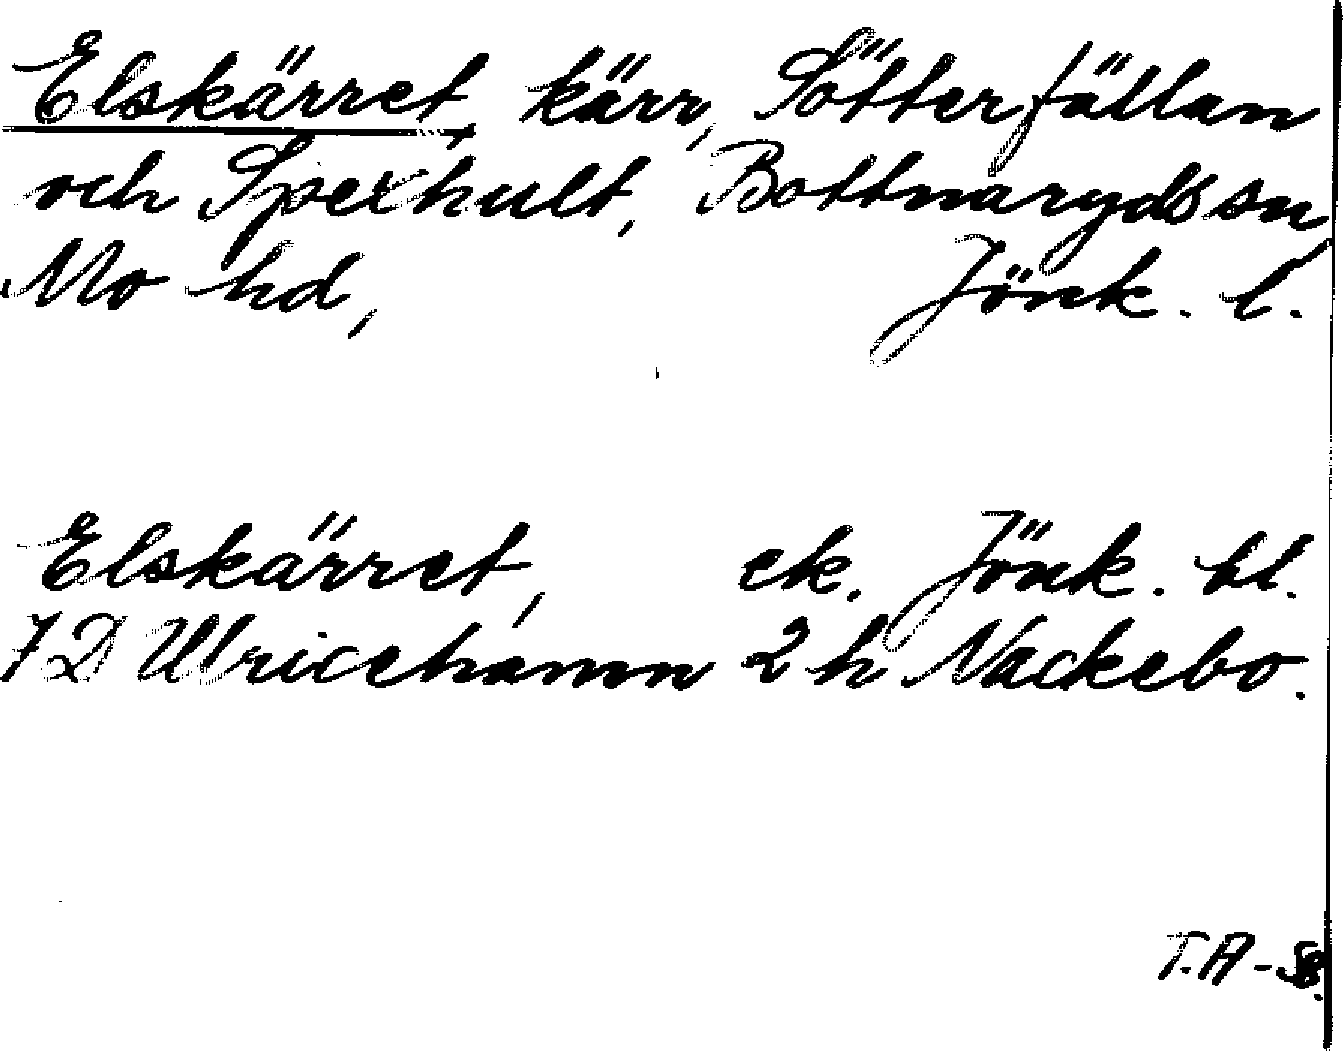 Elskärret, kärr, Sötterfällan
och Spexhult, Bottnaryds sn,
Mo hd, Jönk. l.
Elskärret, ek. Jönk. bl.
7 D Ulricehamn 2 h Nackebo.
T.A-58.